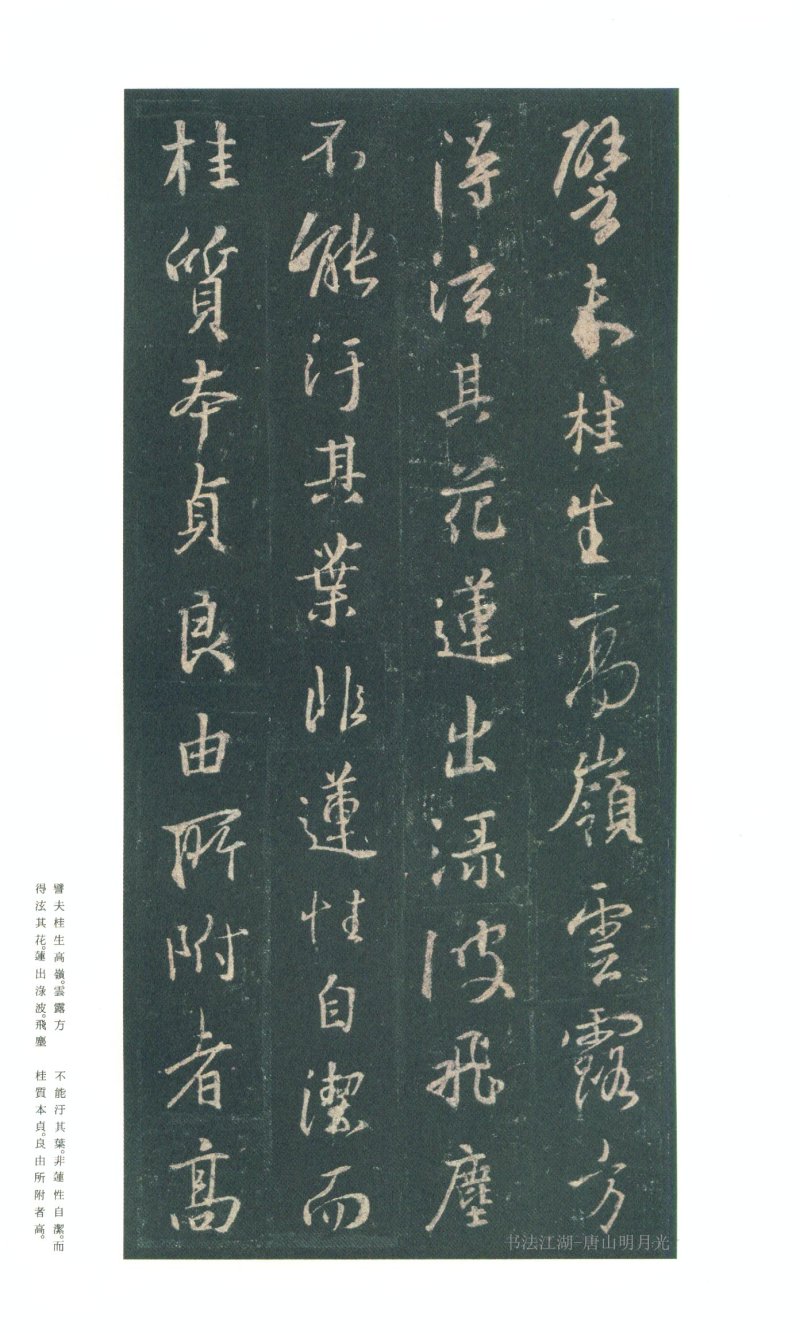 譬夫桂生高嶺雲露方
得泫其花蓮出淥波飛塵
不能汙其葉非蓮性自潔而
桂質本貞良由所附者高
譬夫桂生高嶺。雲露方
得泫其花。蓮出淥波。飛塵
不能汙其葉。非蓮性自潔。而
桂質本貞。良由所附者高。
书法江湖-唐山明月光